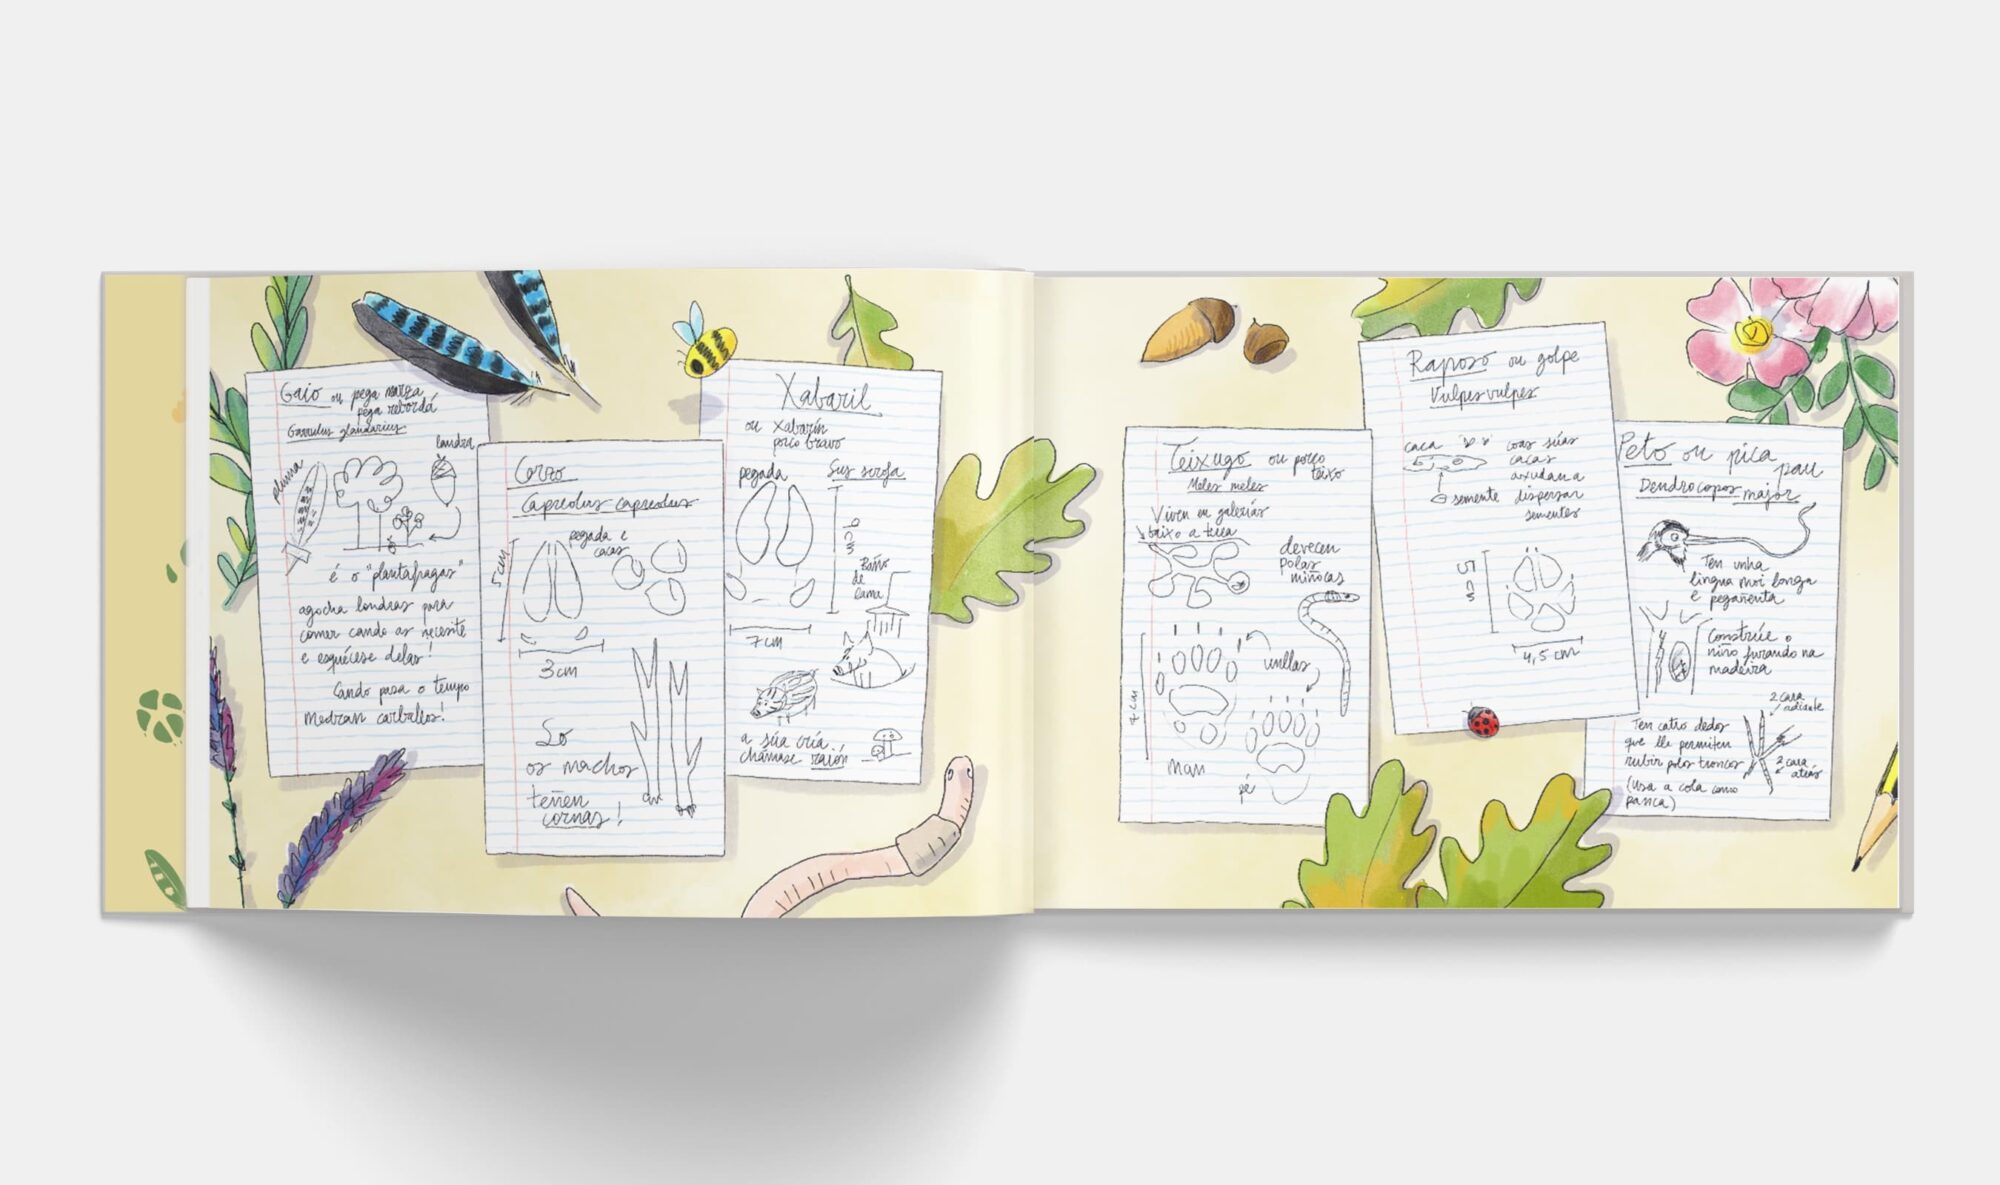 Gaio ou pega marza
pega rebordá
Garrulus glandarius
landra
pluma
é o "plantafragas"
agocha landras para
comer cando as necesite
e esquécese delas!
Cando pasa o tempo
medran carballos!
Corzo
Capreolus capreolus
pegada e
cacas
5 cm
3 cm
So
os machos
teñen
cornas!
Xabaril
ou xabarín
porco bravo
pegada
Sus scrofa
9 cm
Baño
de
lama
7 cm
a súa cría
chámase raión
Teixugo ou porco
teixo
Meles meles
Viven en galerías
baixo a terra
devecen
polas
miñocas
unllas
7 cm
man
pé
Raposo ou golpe
Vulpes vulpes
caca
coas súas
cacas
axudan a
dispersar
sementes
semente
5 cm
4,5 cm
Peto ou pica
pau
Dendrocopos major
Ten unha
lingua moi longa
e pegañenta
Constrúe o
niño furando na
madeira
2 cara
adiante
Ten catro dedos
que lle permiten
rubir polos troncos
2 cara
atrás
(usa a cola como
panca)